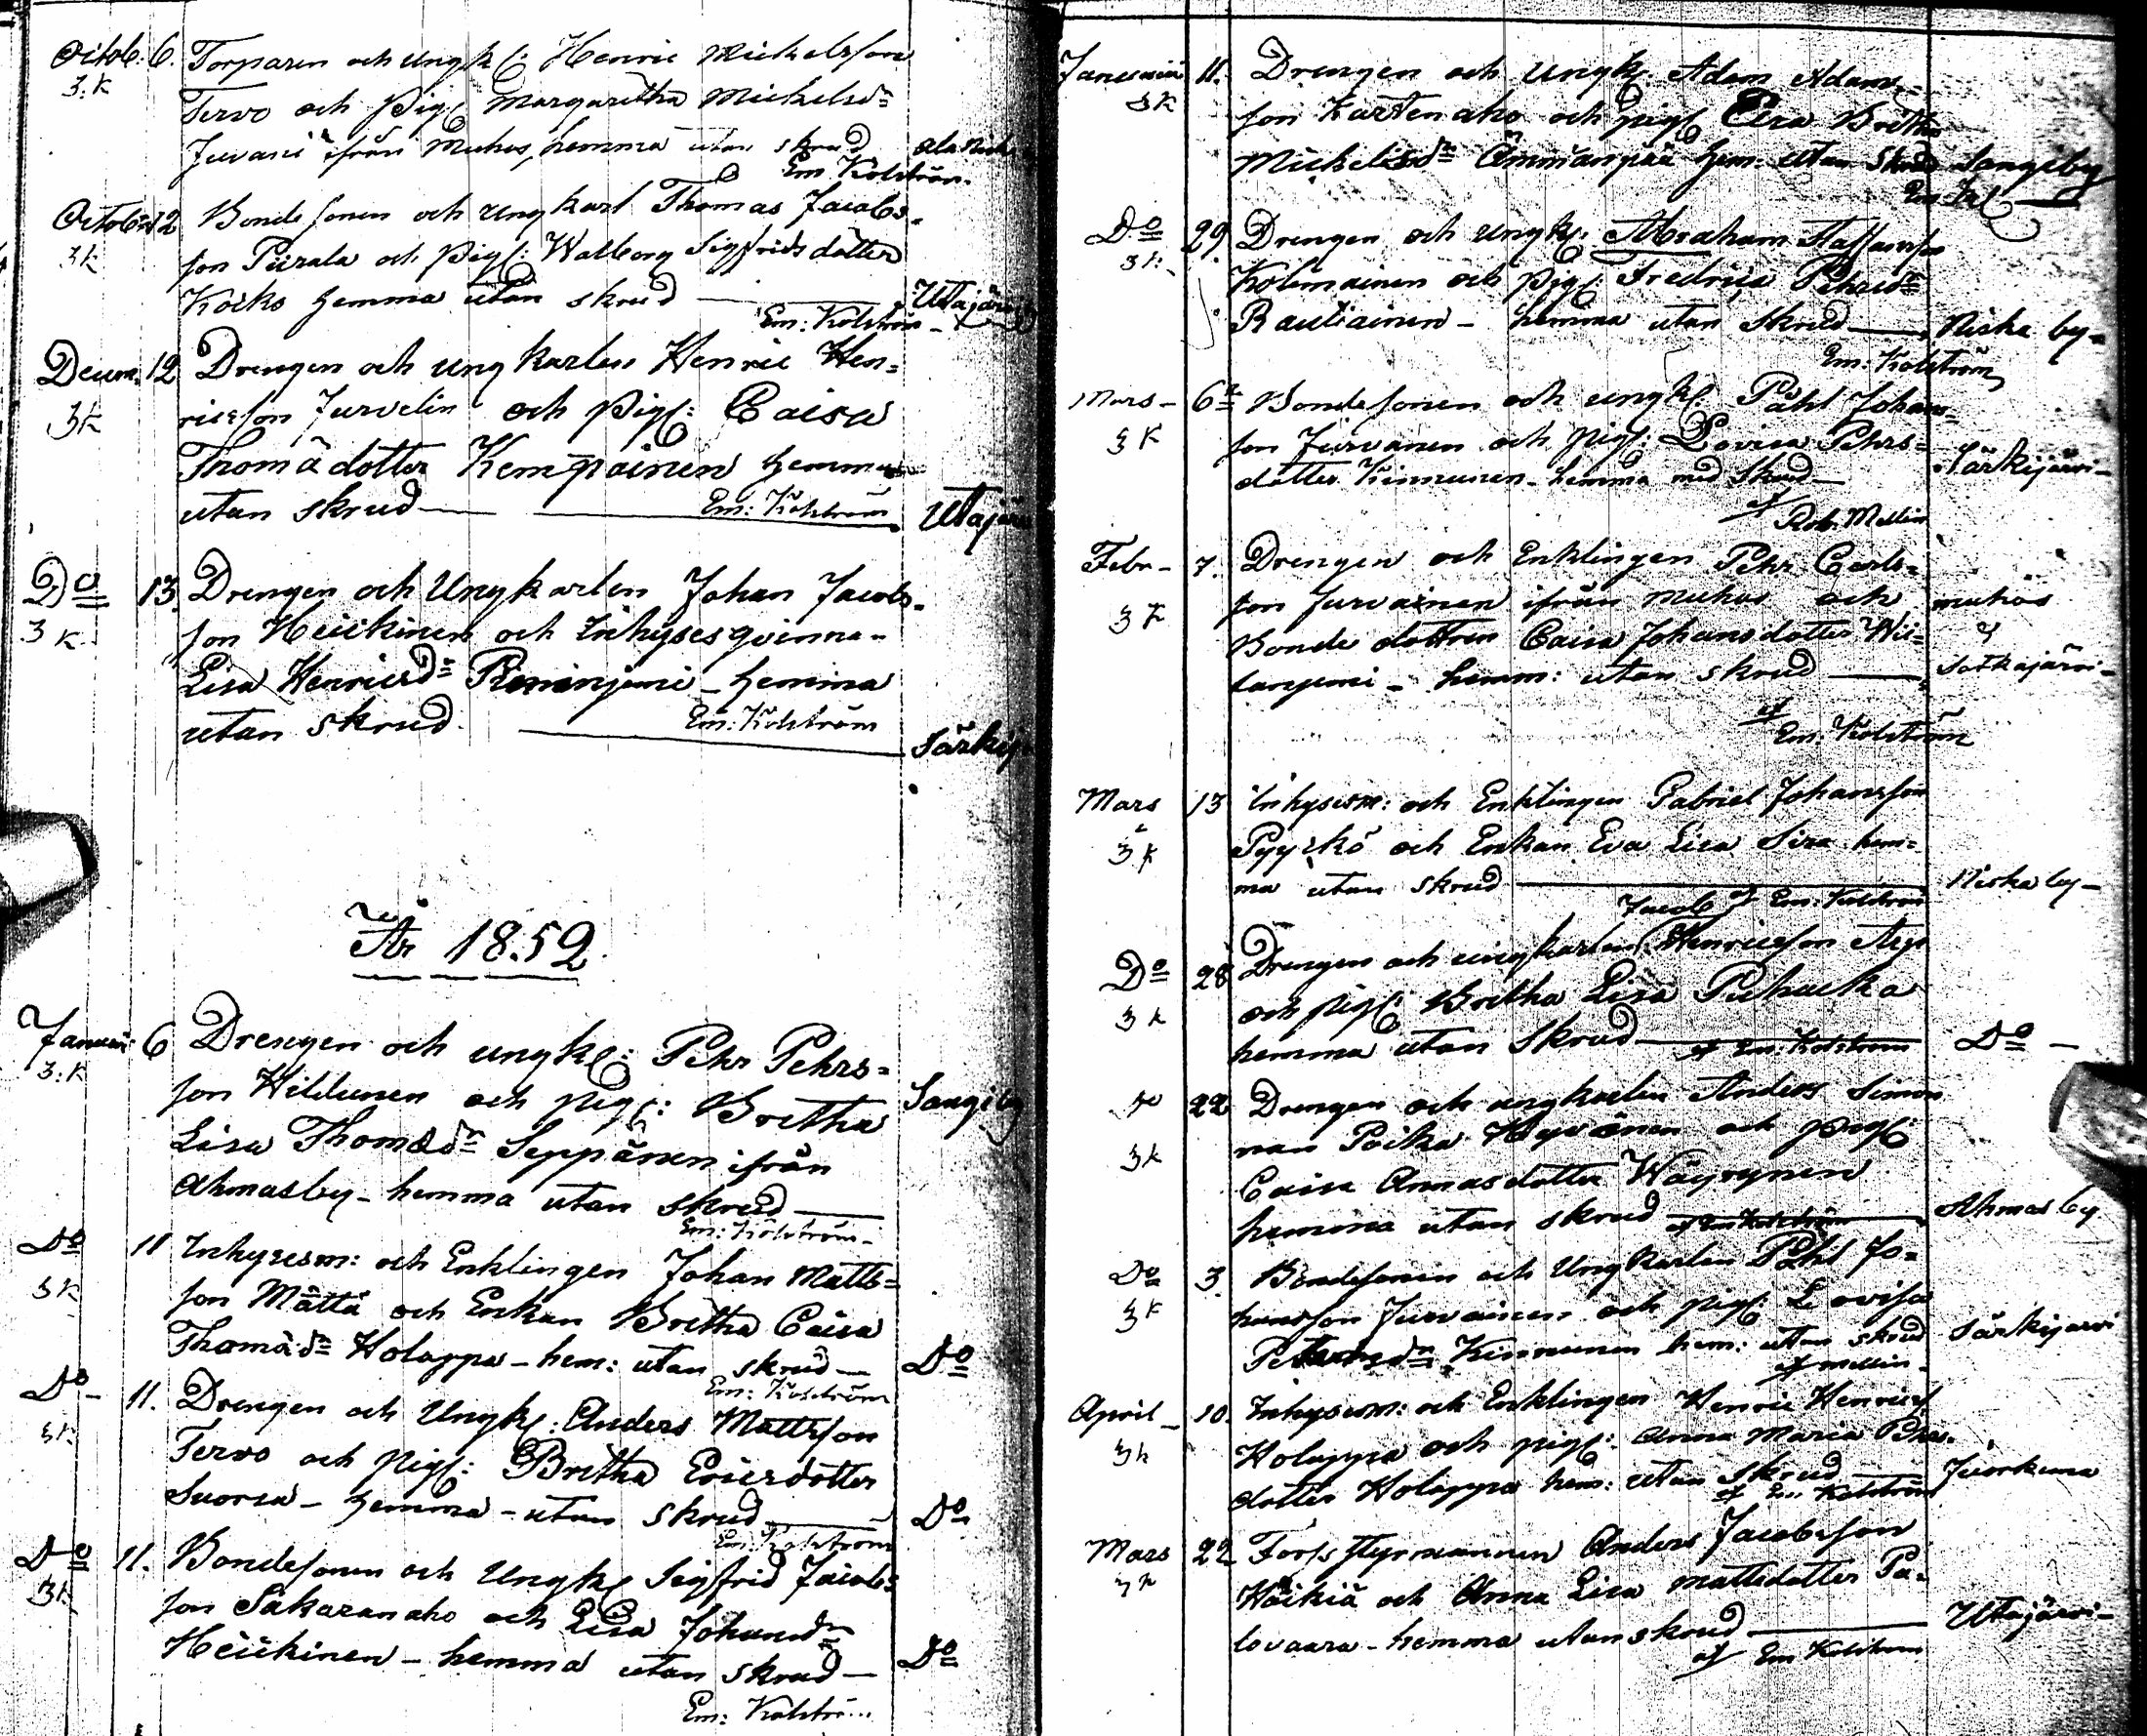 Octob: 6. Torparen och ungk: Henric Michelsson
3. K Tervo och Pig: Margaretha Michelsdr
Juvani ifrån Muhos, hemma utan skrud
Em. Kolström
October 12 Bondesonen och ungkarl Thomas Jacobs-
3 K son Piirala och Pig: Walborg Sigfridsdotter
Koiko hemma utan skrud — Utajärvi
Em: Kolström
Decem. 12 Drengen och ungkarlen Henric Hen-
3 K ricsson Jurvelin och Pig: Caisa
Thomädotter Kempainen hemma
utan skrud — Em: Kolström Utajärvi
Do 13. Drengen och Ungkarlen Johan Jacobs-
3 K son Heickinen och Inhysesqvinna
Lisa Henricsdr — hemma
utan skrud. Em: Kolström Särkij
År 1852
Januari 6 Drengen och ungk: Pehr Pehrs-
3. K son Hildunen och pig: Bretha Sangiby
Lisa Thomædr Seppänen ifrån
Ahmasby - hemma utan skrud —
Em: Kolström
Do 11 Inhysesm: och Enklingen Johan Matts-
3 K son Mättä och Enkan Bretha Caisa
Thomädr Holappa - hem: utan skrud — Do
Em: Kolström
Do - 11. Drengen och Ungk: Anders Mattsson
3 K Tervo och pig: Bretha Ericsdotter
Suorsa - hemma - utan skrud — Do
Em: Kolström
Do 11. Bondesonen och Ungk Sigfrid Jacobs-
3 K son Sakaranaho och Lisa Johansdr
Heickinen - hemma utan skrud — Do
Em: Kolström
Januari 11. Drengen och ungk: Adam Adams-
3 K son Karstenaho och pig: Elsa Bretha
Michelsdr Ämmänpää hem. utan skrud Sangiby
Do 29. Drengen och ungk: Abraham Staffansson
3 K Kolemainen och Pig: Fredrica Pehrsdr
Rautiainen - hemma utan skrud — Niska by -
Em: Kolström
Mars - 6te Bondesonen och ungk: Påhl Johans-
3 K son Jurvanen och pig: Lovisa Pehrs-
dotter Kinnunen - hemma med skrud — Särkijärvi -
af Rob. Mellin
Febr - 7. Drengen och Enklingen Pehr Carls-
3 K son Jurvainen ifrån Muhos och Muhos
Bonde dottren Caisa Johansdotter Wii-
tanjemi - hemm: utan skrud — Sotkajärvi -
af
Em: Kolström
Mars 13 Inhysesm: och Enklingen Gabriel Johansson
3 K Pyyckö och Enkan Eva Lisa Sira hem-
ma utan skrud — Niska by -
af Em: Kolström
Jacob
Do 28 Drengen och ungkarlen Henricsson
3 K och pig: Bretha Lisa Puhacka
hemma utan skrud — af Em: Kolström Do -
Do 22 Drengen och ungkarlen Anders Simon
3 K nan Poika Hyvönen och pig:
Caisa Annasdotter Wäyrynen
hemma utan skrud af Em Kolström Ahmas by
Do 3. Bondesonen och Ungkarlen Påhl Jo-
3 K hansson Jurvainen och pig: Lovisa
Kinnunen hem: utan skrud Särkijärvi
af Mellin -
April - 10. Inhysesm: och Enklingen Henric Henricss
3 K Holappa och pig: Anna Maria Pehrs-
dotter Holappa hem: utan skrud — Juorkuna
af Em Kolström
Mars 22 Forsstyrmannen Anders Jacobsson
3 K Häikiä och Anna Lisa Mattsdotter Pa-
lovaara - hemma utan skrud — Utajärvi -
af Em Kolström